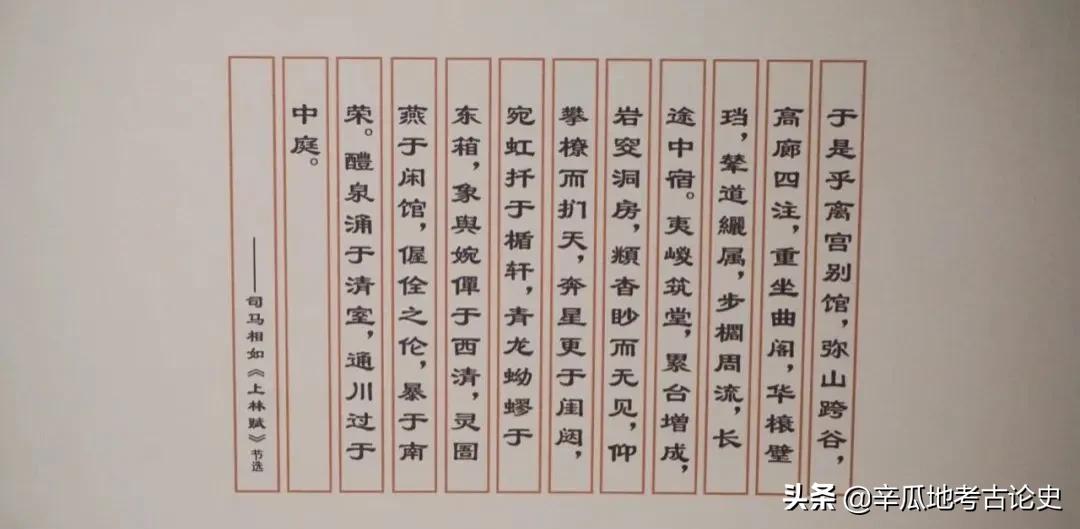 于是乎离宫别馆，弥山跨谷，
高廊四注，重坐曲阁，华榱壁
珰，辇道纚属，步櫩周流，长
途中宿。夷嵕筑堂，累台增成，
岩窔洞房，頫杳眇而无见，仰
攀橑而扪天，奔星更于闺闼，
宛虹扦于楯轩，青龙蚴蟉于
东箱，象舆婉僤于西清，灵圄
燕于闲馆，偓佺之伦，暴于南
荣。醴泉涌于清室，通川过于
中庭。
——司马相如《上林赋》节选
头条 @辛瓜地考古论史